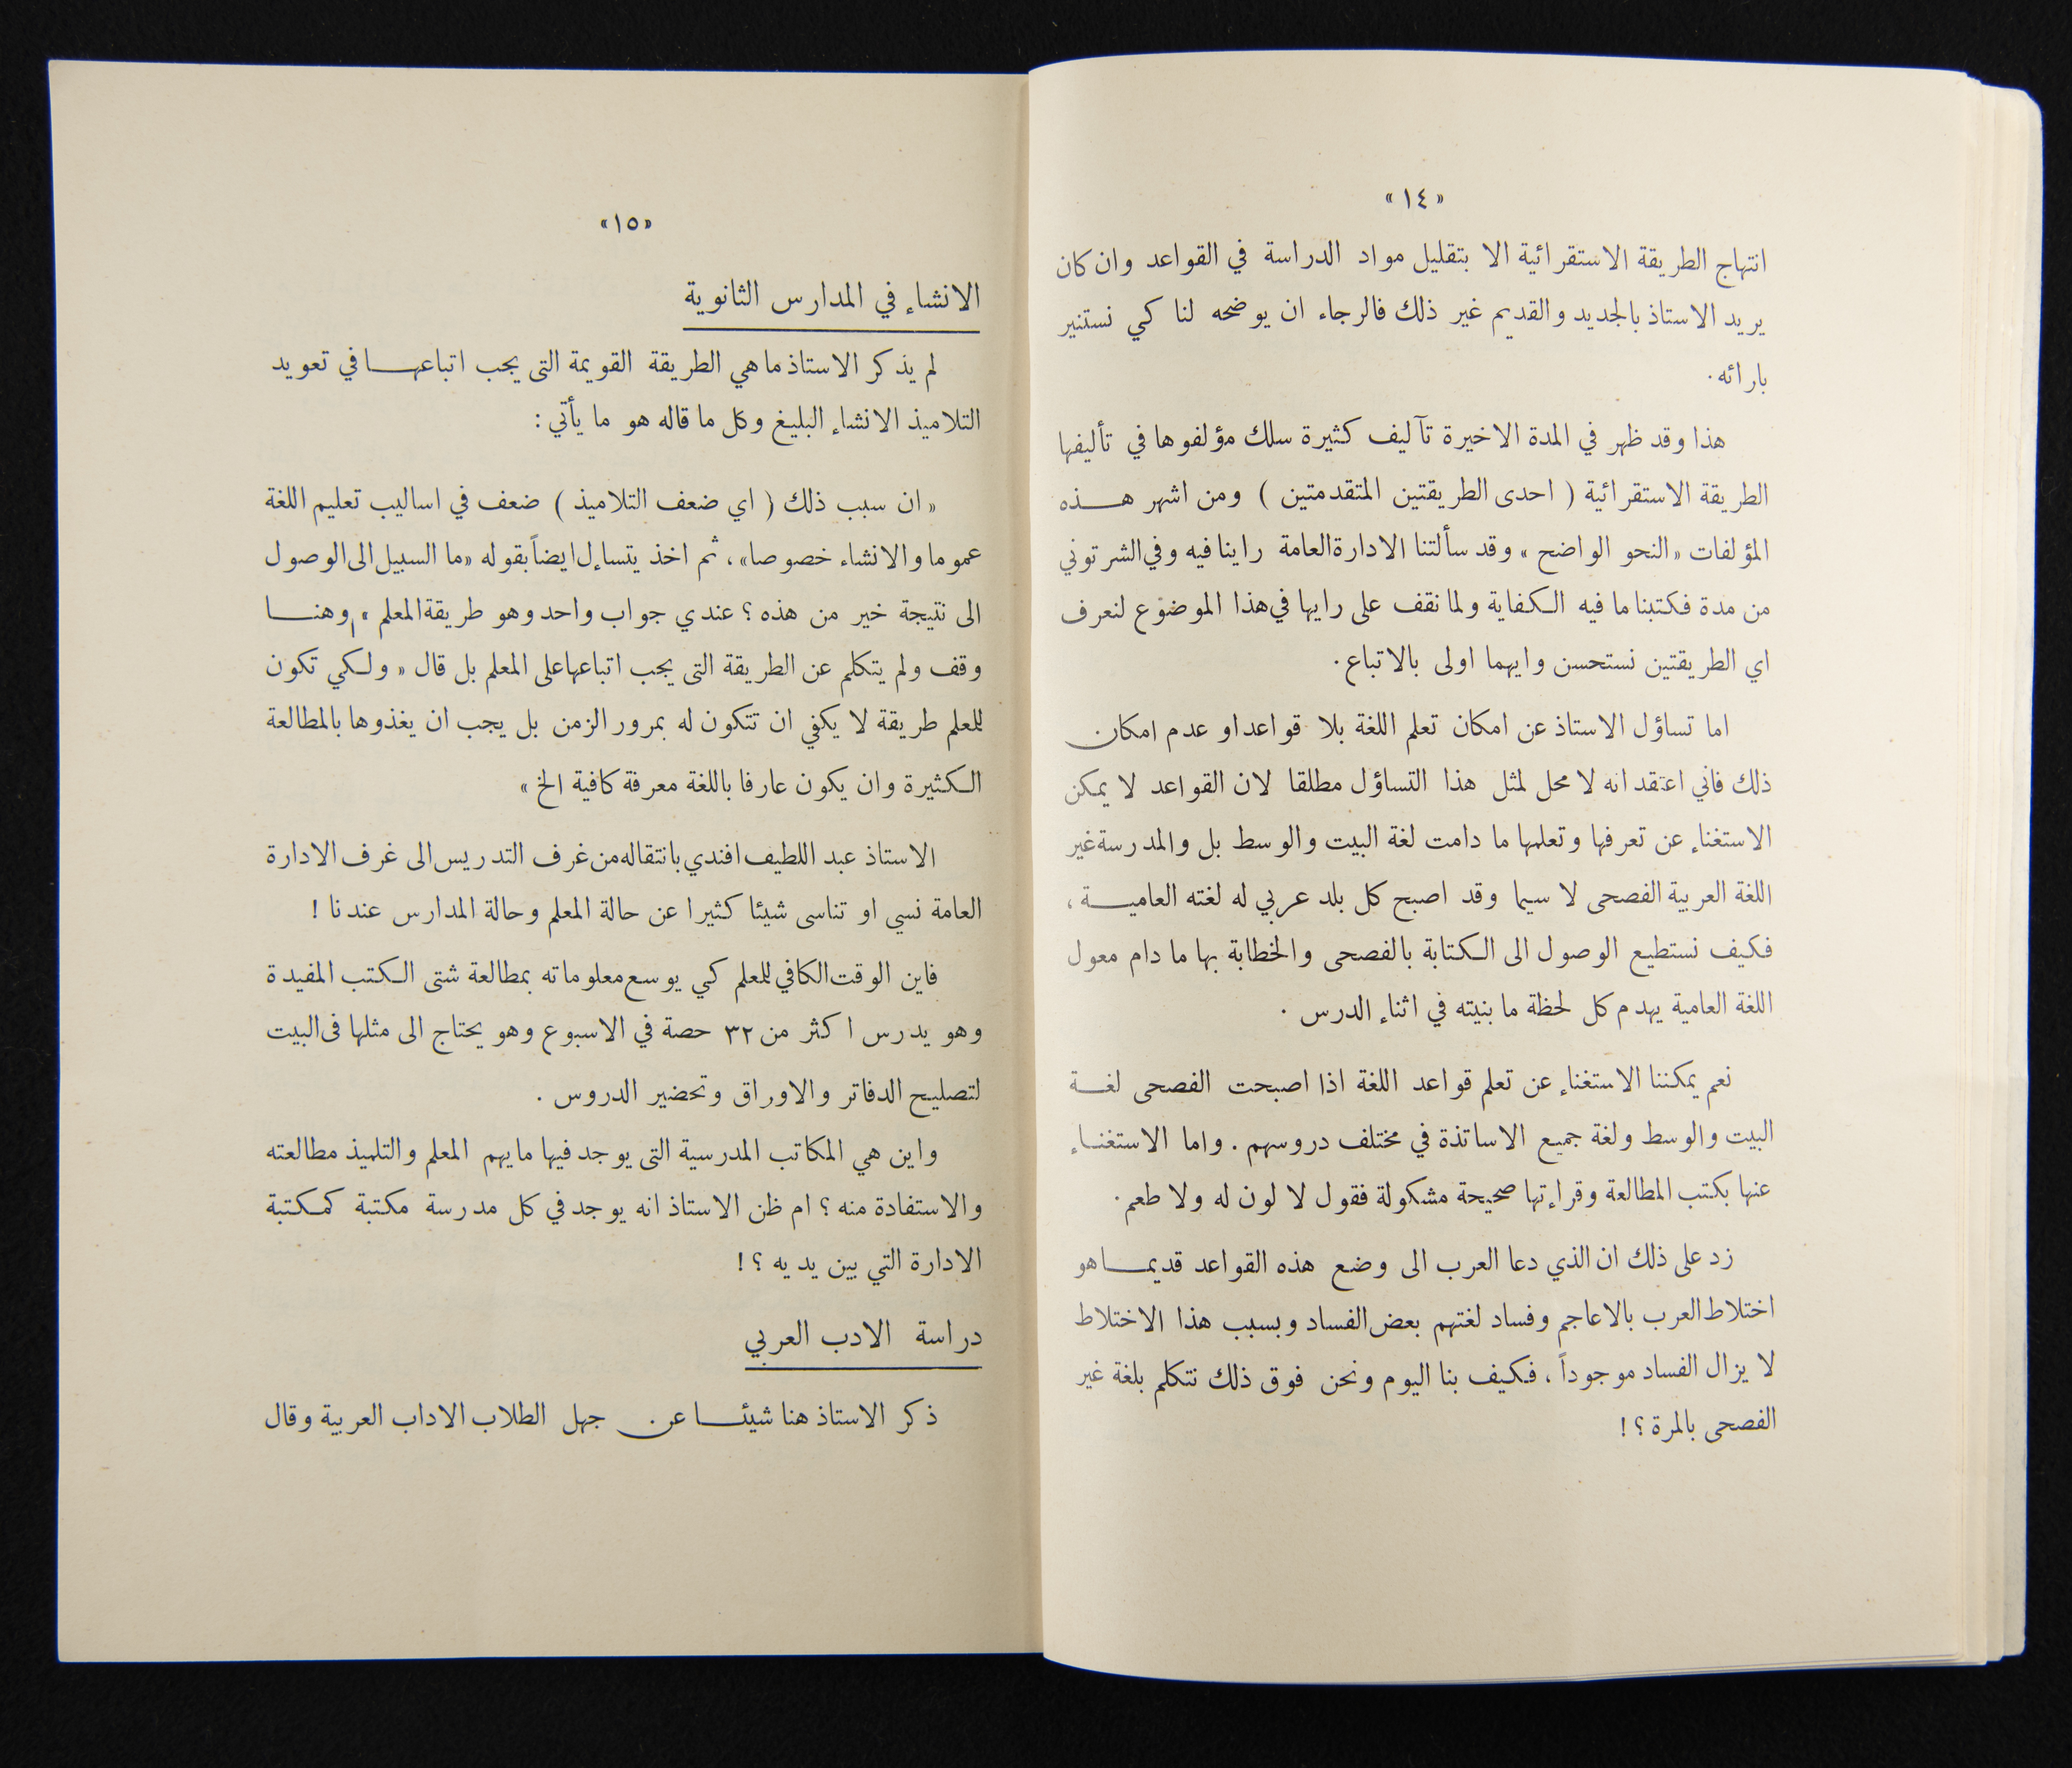 « ١٤ »
انتهاج الطريقة الاستقرائية الا بتقليل مواد الدراسة في القواعد وان كان
يريد الاستاذ بالجديد والقديم غير ذلك فالرجاء ان يوضحه لنا كي نستنير
بارائه.
هذا وقد ظهر في المدة الاخيرة تآليف كثيرة سلك مؤلفوها في تأليفها
الطريقة الاستقرائية ( احدى الطريقتين المتقدمتين ) ومن اشهر هذه
المؤلفات «النحو الواضح» وقد سألتنا الادارة العامة راينا فيه وفي الشرتوني
من مدة فكتبنا ما فيه الكفاية ولما نقف على رايها في هذا الموضوع لنعرف
اي الطريقتين نستحسن وايهما اولى بالاتباع.
اما تساؤل الاستاذ عن امكان تعلم اللغة بلا قواعد او عدم امكان
ذلك فاني اعتقد انه لا محل لمثل هذا التساؤل مطلقا لان القواعد لا يمكن
الاستغناء عن تعرفها وتعلمها ما دامت لغة البيت والوسط بل والمدرسة غير
اللغة العربية الفصحى لا سيما وقد اصبح كل بلد عربي له لغته العامية ،
فكيف نستطيع الوصول الى الكتابة بالفصحى والخطابة بها ما دام معول
اللغة العامية يهدم كل لحظة ما بنيته في اثناء الدرس .
نعم يمكننا الاستغناء عن تعلم قواعد اللغة اذا اصبحت الفصحى لغة
البيت والوسط ولغة جميع الاساتذة في مختلف دروسهم . واما الاستغناء
عنها بكتب المطالعة وقراءتها صحيحة مشكولة فقول لا لون له ولا طعم .
زد على ذلك ان الذي دعا العرب الى وضع هذه القواعد قديما هو
اختلاط العرب بالاعاجم وفساد لغتهم بعض الفساد وبسبب هذا الاختلاط
لا يزال الفساد موجوداً ، فكيف بنا اليوم ونحن فوق ذلك نتكلم بلغة غير
الفصحى بالمرة ؟ !
«١٥»
الانشاء في المدارس الثانوية
لم يذكر الاستاذ ما هي الطريقة القويمة التى يجب اتباعها في تعويد
التلاميذ الانشاء البليغ وكل ما قاله هو ما يأتي :
« ان سبب ذلك ( اي ضعف التلاميذ ) ضعف في اساليب تعليم اللغة
عموما والانشاء خصوصا» ، ثم اخذ يتساءل ايضاً بقوله «ما السبيل الى الوصول
الى نتيجة خير من هذه ؟ عندي جواب واحد وهو طريقة المعلم » وهنا
وقف ولم يتكلم عن الطريقة التى يجب اتباعها على المعلم بل قال « ولكي تكون
للمعلم طريقة لا يكفي ان تتكون له بمرور الزمن بل يجب ان يغذوها بالمطالعة
الكثيرة وان يكون عارفا باللغة معرفة كافية الخ »
الاستاذ عبد اللطيف افندي بانتقاله من غرف التدريس الى غرف الادارة
العامة نسي او تناسى شيئا كثيرا عن حالة المعلم وحالة المدارس عندنا !
فاين الوقت الكافي للمعلم كي يوسع معلوماته بمطالعة شتى الكتب المفيدة
وهو يدرس اكثر من ٣٢ حصة في الاسبوع وهو يحتاج الى مثلها فى البيت
لتصليح الدفاتر والاوراق وتحضير الدروس .
واين هي المكاتب المدرسية التى يوجد فيها ما يهم المعلم والتلميذ مطالعته
والاستفادة منه ؟ ام ظن الاستاذ انه يوجد في كل مدرسة مكتبة كمكتبة
الادارة التي بين يديه ؟ !
دراسة الادب العربي
ذكر الاستاذ هنا شيئا عن جهل الطلاب الاداب العربية وقال